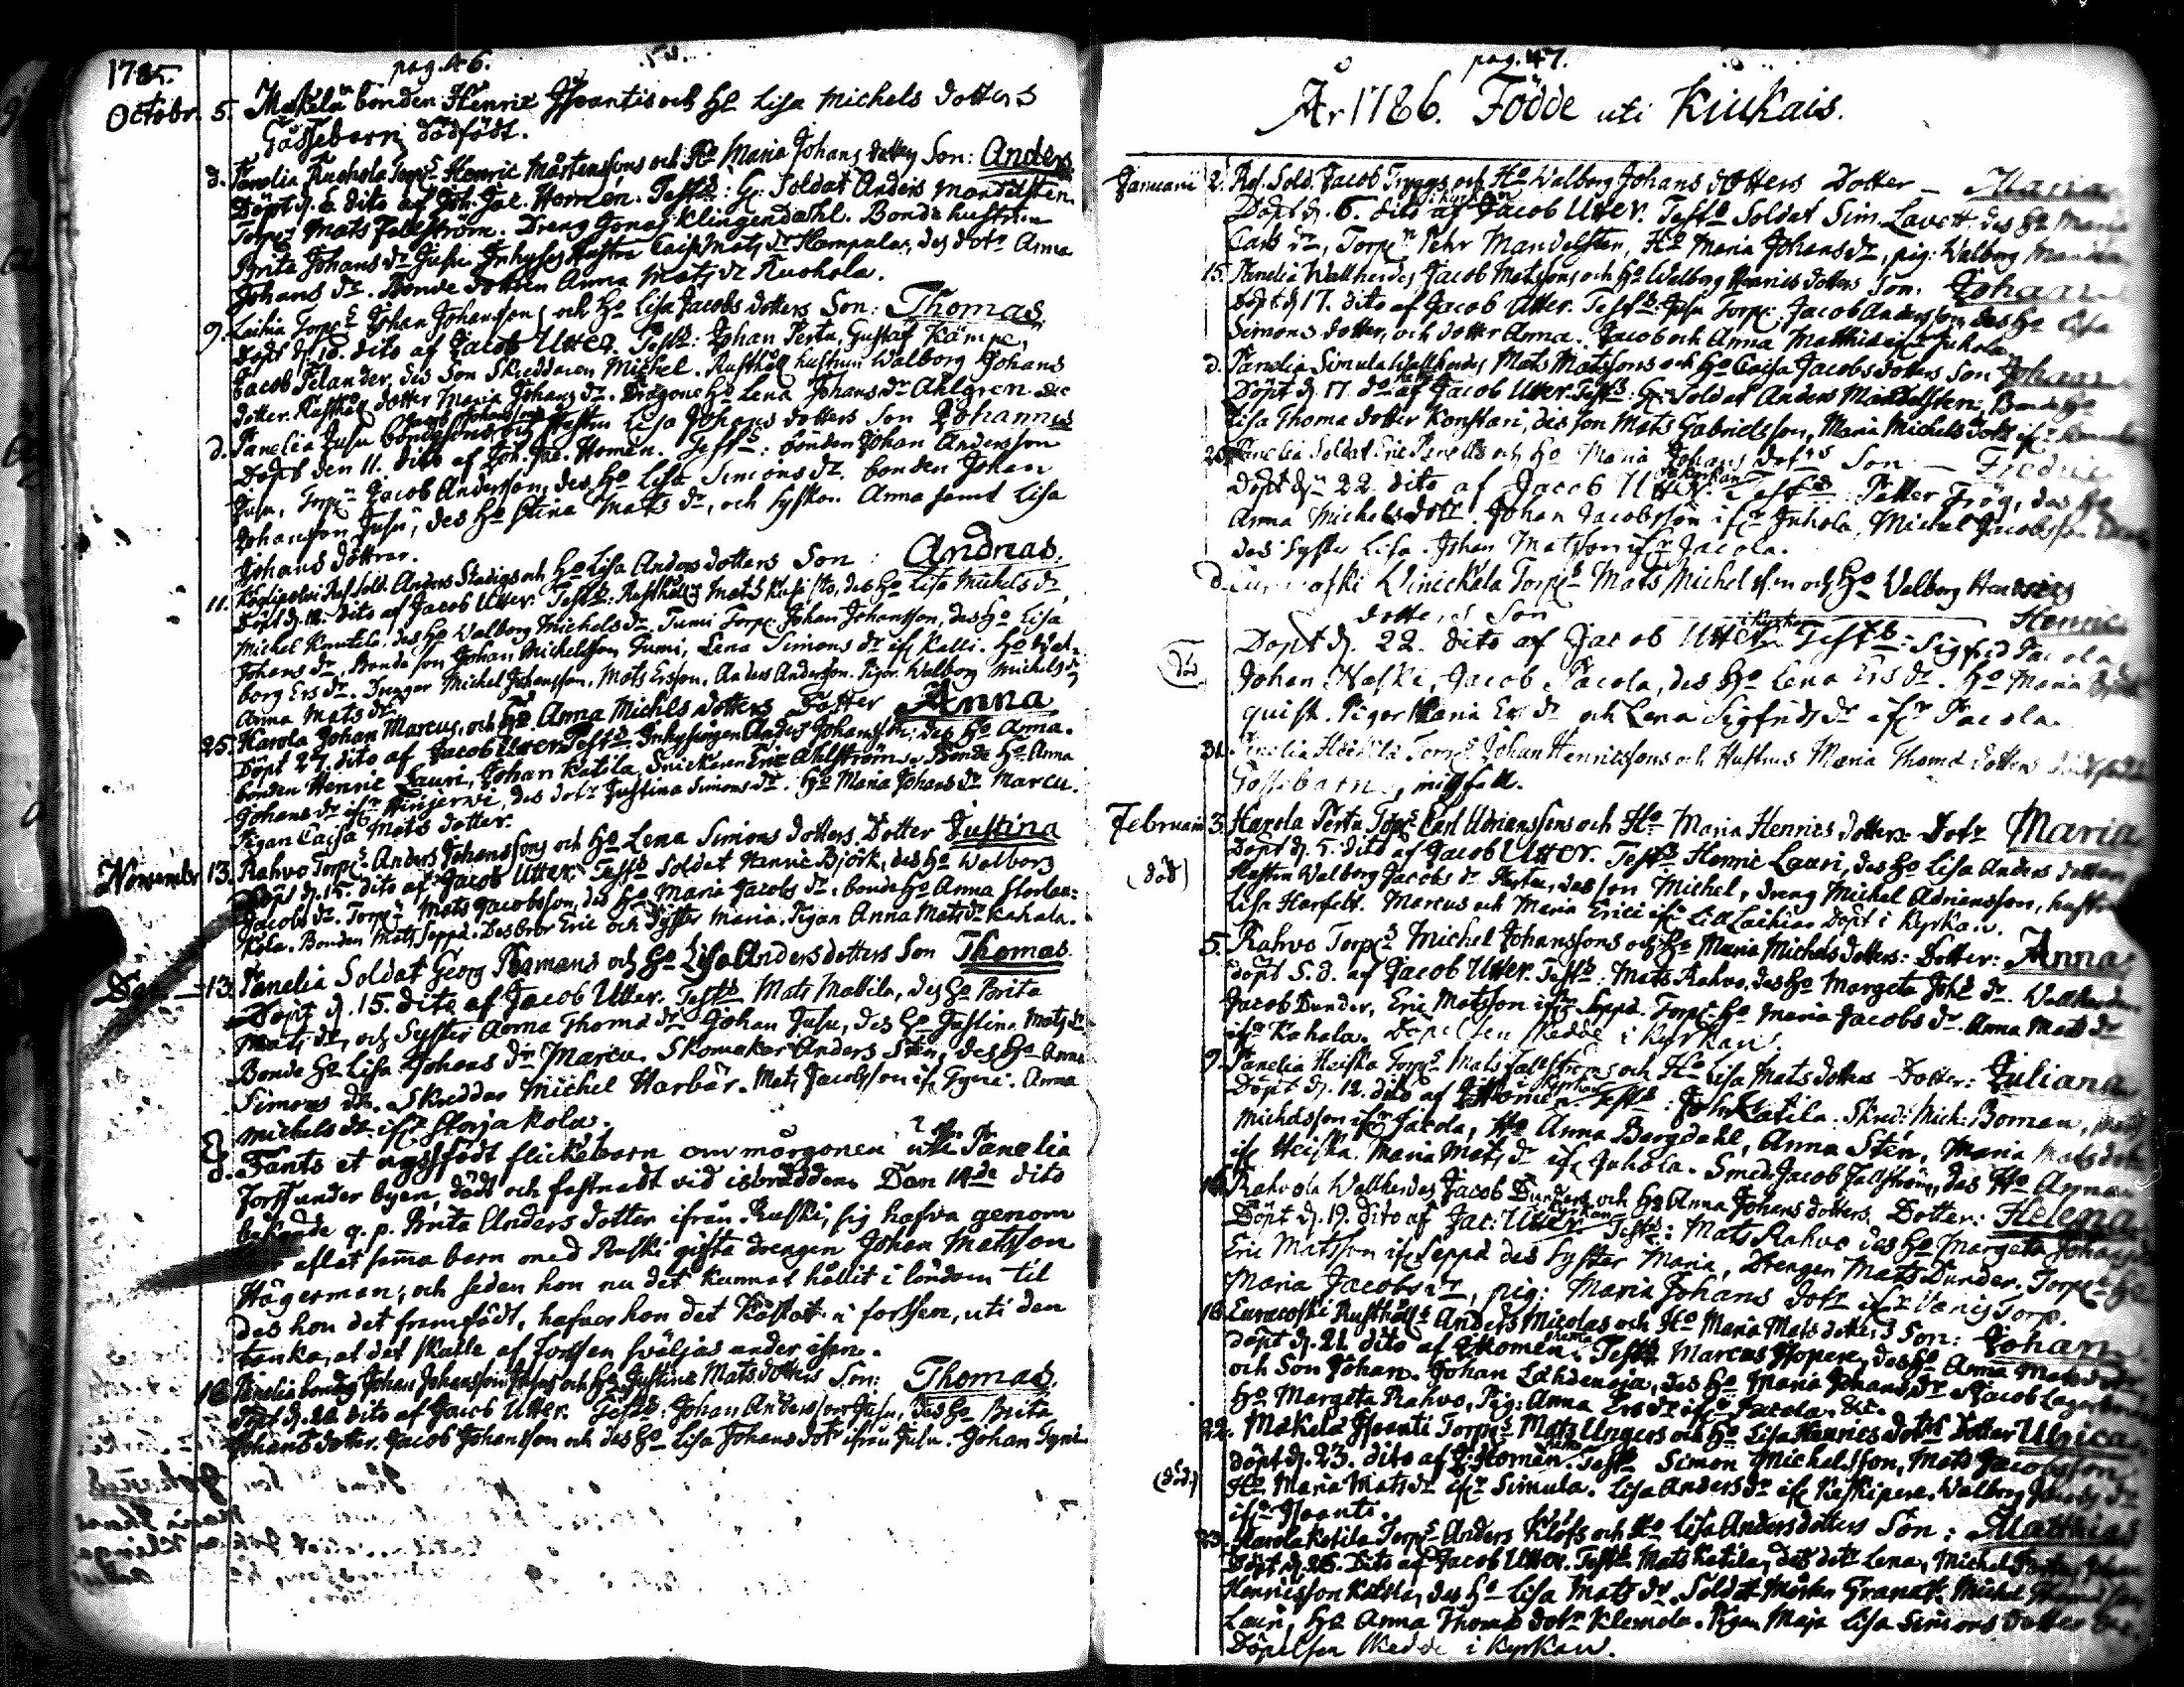 1785.
pag. 46.
Octobr. 5. Mäkelä bonden Henric Isoantis och Ho Lisa Michels dotters
Gåssebarn, dödfödt.
d. Panelia Kuohola Torpr Henric Mårtenssons och Ho Maria Johans dotters Son: Anders
Döpt d. 6. dito af Joh. Jac. Homén. Test: Gl. Soldat Anders Mandelsten.
Torpr Mats Fallström. Dreng Jonas Klingendahl. Bonde hustrun
Brita Johans dr Jusu. Inhyses Hustru Caisa Mats dr Hampula, des dotr Anna
Johans dr. Bonde dottren Anna Mats dr Kuohola.
9. Laihia Torpr Johan Johanssons och Ho Lisa Jacobs dotters Son: Thomas
Döpt d. 10. dito af Jacob Utter. Test: Johan Perta, Gustaf Kämpe,
Jacob Felander, des Son Skreddaren Michel. Rusthåll hustrun Walborg Johans
dotter. Rusthåll dotter Maria Johans dr. Dragone Ho Lena Johans dr Ahlgren
d. Panelia Jusu bondesons Jacob Johanssons och Hustru Lisa Johans dotters Son Johannes
Döpt den 11. dito af Joh. Jac. Homén. Test: bonden Johan Andersson
Jusu, Torpr Jacob Andersson, des Ho Lisa Simons dr. bonden Johan
Johansson Jusu, des Ho Stina Mats dr, och Syskon Anna samt Lisa
Johans döttrar.
11. Ref Sold. Anders Stadigs och Ho Lisa Anders dotters Son: Andreas.
Döpt d. 12. dito af Jacob Utter. Test: Rusthåll Mats Kusisto, des Ho Lisa Michels dr,
Michel Knutila, des Ho Walborg Michels dr. Tumi Torpr Johan Johansson, des Ho Lisa
Johans dr. Bonde son Johan Michelsson Tumi, Lena Simons dr ifr Kalli. Ho Wal-
borg Ers dr. Drenger Michel Johansson, Mats Ersson, Anders Andersson. Pigor. Walborg Michels dr
Anna Mats dr
25. Harola Johan Marcus, och Ho Anna Michels dotters Dotter Anna
Döpt 27. dito af Jacob Utter Test Inhysingen Anders Johansson, des Ho Anna.
bonden Henric Lauri, Johan Katila, Snickaren Eric Ahlström. Bonde Ho Anna
Johans dr ifr Hinjerwi, des dotr Justina Simons dr. Ho Maria Johans dr Marcu.
Pigan Caisa Mats dotter.
Novembr. 13. Rahvo Torpr Anders Johanssons och Ho Lena Simons dotters. Dotter Justina
Döpt d. 15. dito af Jacob Utter. Test Soldat Henric Björk, des Ho Walborg
Jacobs dr. Torpr Mats Jacobsson, des Ho Maria Jacobs dr. bonde Ho Anna Storlau-
kola. Bonden Mats Seppä. Des bror Eric och Syster Maria. Pigan Anna Mats dr Kahala.
Dec. 13. Panelia Soldat Georg Romans och Ho Lisa Anders dotters Son Thomas
Döpt d. 15. dito af Jacob Utter. Test Mats Mattila, des Ho Brita
Mats dr, och Syster Anna Thoma dr Johan Jusu, des Ho Justina Mats dr
Bonde Ho Lisa Johans dr Marcu. Skomakar Anders Sten, des Ho Anna
Simons dr. Skreddar Michel Harbär. Mats Jacobsson if. Tyni. Anna
Michels dr ifr Storjakola.
d. Fants et nyssfödt flickebarn om morgonen uti Panelia
Forss under byen, dödt och fastnadt vid isbrädden. Den 14de dito
bekände q. p. Brita Anders dotter ifrån Ruski, sig hafva genom
aflat sama barn med Ruski gifta drengen Johan Matsson
Hägerman; och sedan hon nu det kunnat hållit i löndom til
des hon det framfödt, hafver hon det kastat i forssen, uti den
tanka, at det skulle af forssen sväljas under isen.
16. Panelia bonden Johan Johansson Jusus och Ho Justina Mats dotters Son: Thomas.
Döpt d. 20. dito af Jacob Utter. Test: Johan Andersson Jusu, des Ho Brita
Johans dotter. Jacob Johansson och des Ho Lisa Johans dotr ifrån Jusu. Johan Tyni
pag. 47.
År 1786. Födde uti Kiukais.
Januarii 2. Ref. Sold. Jacob Tryggs och Ho Walborg Johans dotters Dotter — Maria
Döpt d. 6. dito af Jacob Utter. Test Soldat Sim. Lavett, des Ho Maria
Carls dr, Torpr Pehr Mandelsten, Ho Maria Johans dr, pig. Walborg
15. Panelia Wallherdes Jacob Matssons och Ho Walborg Henrics dotters Son: Johan
Döpt d. 17. dito af Jacob Utter. Test: Jusu Torpr Jacob Andersson des Ho Lisa
Simons dotter, och dotter Anna. Jacob och Anna Matthiæ if. Juhola
d. Panelia Simula Wallherdes Mats Matssons och Ho Caisa Jacobs dotters Son Johan
Döpt d. 17. do af Jacob Utter. Test: Gl. Soldat Anders Mandelsten, Bonde Ho
Lisa Thoma dotter Konstari, des son Mats Gabrielsson, Maria Michels dotr ifr
20. Panelia Soldat Eric och Ho Maria Johans dotrs Son — Fredric
Döpt d. 22. dito af Jacob Utter i kyrkan Test: Petter Frög, des Ho
Anna Michels dotr. Johan Jacobsson ifr Juhola, Michel Jacobsson
des Syster Lisa. Johan Matsson ifr Jacola.
d. Winickala Torpr Mats Michelsson och Ho Walborg Henrics
dotters Son Henric
Döpt d. 22. dito af Jacob Utter i kyrkan Test: Sigfrid Pacola
Johan Naski, Jacob Pacola, des Ho Lena Ers dr. Ho Maria
quist. Pigor Maria Ers dr och Lena Sigfrids dr ifr Pacola.
31. Panelia Heickilä Torpr Johan Henricssons och Hustrus Maria Thoma dotters
Gossebarn, missfall.
Februarii 3. Harola Perta Torpr Carl Adrianssons och Ho Maria Henrics dotters Dotr Maria
(död)
Döpt d. 5. dito af Jacob Utter. Test Henric Lauri, des Ho Lisa Anders dotter
Hustru Walborg Jacobs dr Perta, des son Michel, dreng Michel Adriansson, hustru
Lisa Harfelt. Marcus och Maria Erici ifr Lill Laihia. Döpt i Kyrkan.
5. Rahvo Torpr Michel Johanssons och Ho Maria Michels dotters: Dotter: Anna
Döpt 5. d. af Jacob Utter. Test. Mats Rahvo, des Ho Margeta Joh. dr. Wallherden
Jacob Dunder, Eric Matsson ifr Seppä. Torpr Ho Maria Jacobs dr. Anna Mats dr
ifr Kahala. Döpelsen skedde i kyrkan.
9. Panelia Heiska Torpr Mats Fallströms och Ho Lisa Mats dotters Dotter: Juliana
Döpt d. 12. dito af Homén i kyrkan Test: Joh. Katila. Skred: Mich: Boman, Mats
Michelsson ifr Jacola, Ho Anna Bergdahl, Anna Stén, Maria Mats dotr
if. Heiska. Maria Mats dr ifr Juhola. Smed: Jacob Fallström, des Ho Anna
16. Rahvola Wallherdes Jacob Dunders och Ho Anna Johans dotters. Dotter: Helena
Döpt d. 19. dito af Jac: Utter i kyrkan Test: Mats Rahvo des Ho Margeta Johans dr
Eric Matsson ifr Seppä des Syster Maria, Drengen Mats Dunder. Torpr Ho
Maria Jacobs dr, pig: Maria Johans dotr ifr Vänis Torp.
16. Euracoski Rusthåll Anders Nicolas och Ho Maria Mats dotters Son: Johan
Döpt d. 21. dito af Homén hema Test Marcus Isopere, des Ho Anna Mats dotr
och Son Johan. Johan Lähdenoja, des Ho Maria Johans dr. Jacob
Ho Margeta Rahvo, Pig: Anna Ers dr ifr Pacola. &c.
22. Mäkelä Isoanti Torpr Mats Ungers och Ho Lisa Henrics dotrs Dotter Ulrica.
(död)
Döpt d. 23. dito af J. Homén. Test Simon Michelsson, Mats Jacobsson
Ho Maria Mats dr ifr Simula. Lisa Anders dr ifr Keskipere. Walborg Jacobs dr
ifr Isoanti.
23. Harola Ketola Torpr Anders Klofs och Ho Lisa Anders dotters Son: Matthias
Döpt d. 26. Dito af Jacob Utter. Test Mats Katila, des dotr Lena, Michel
Henricsson Katila, des Ho Lisa Mats dr. Soldat Mårten Granat. Michel
Lauri, Ho Anna Thoma dotr Klemola. Pigan Maja Lisa Simons dotter &c.
Döpelsen skedde i kyrkan.